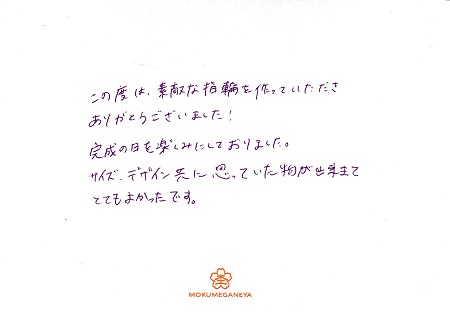 この度は、素敵な指輪を作っていただき
ありがとうございました!
完成の日を楽しみにしておりました。
サイズ、デザイン共に思っていた物が出来まて
とてもよかったです。
MOKUMEGANEYA